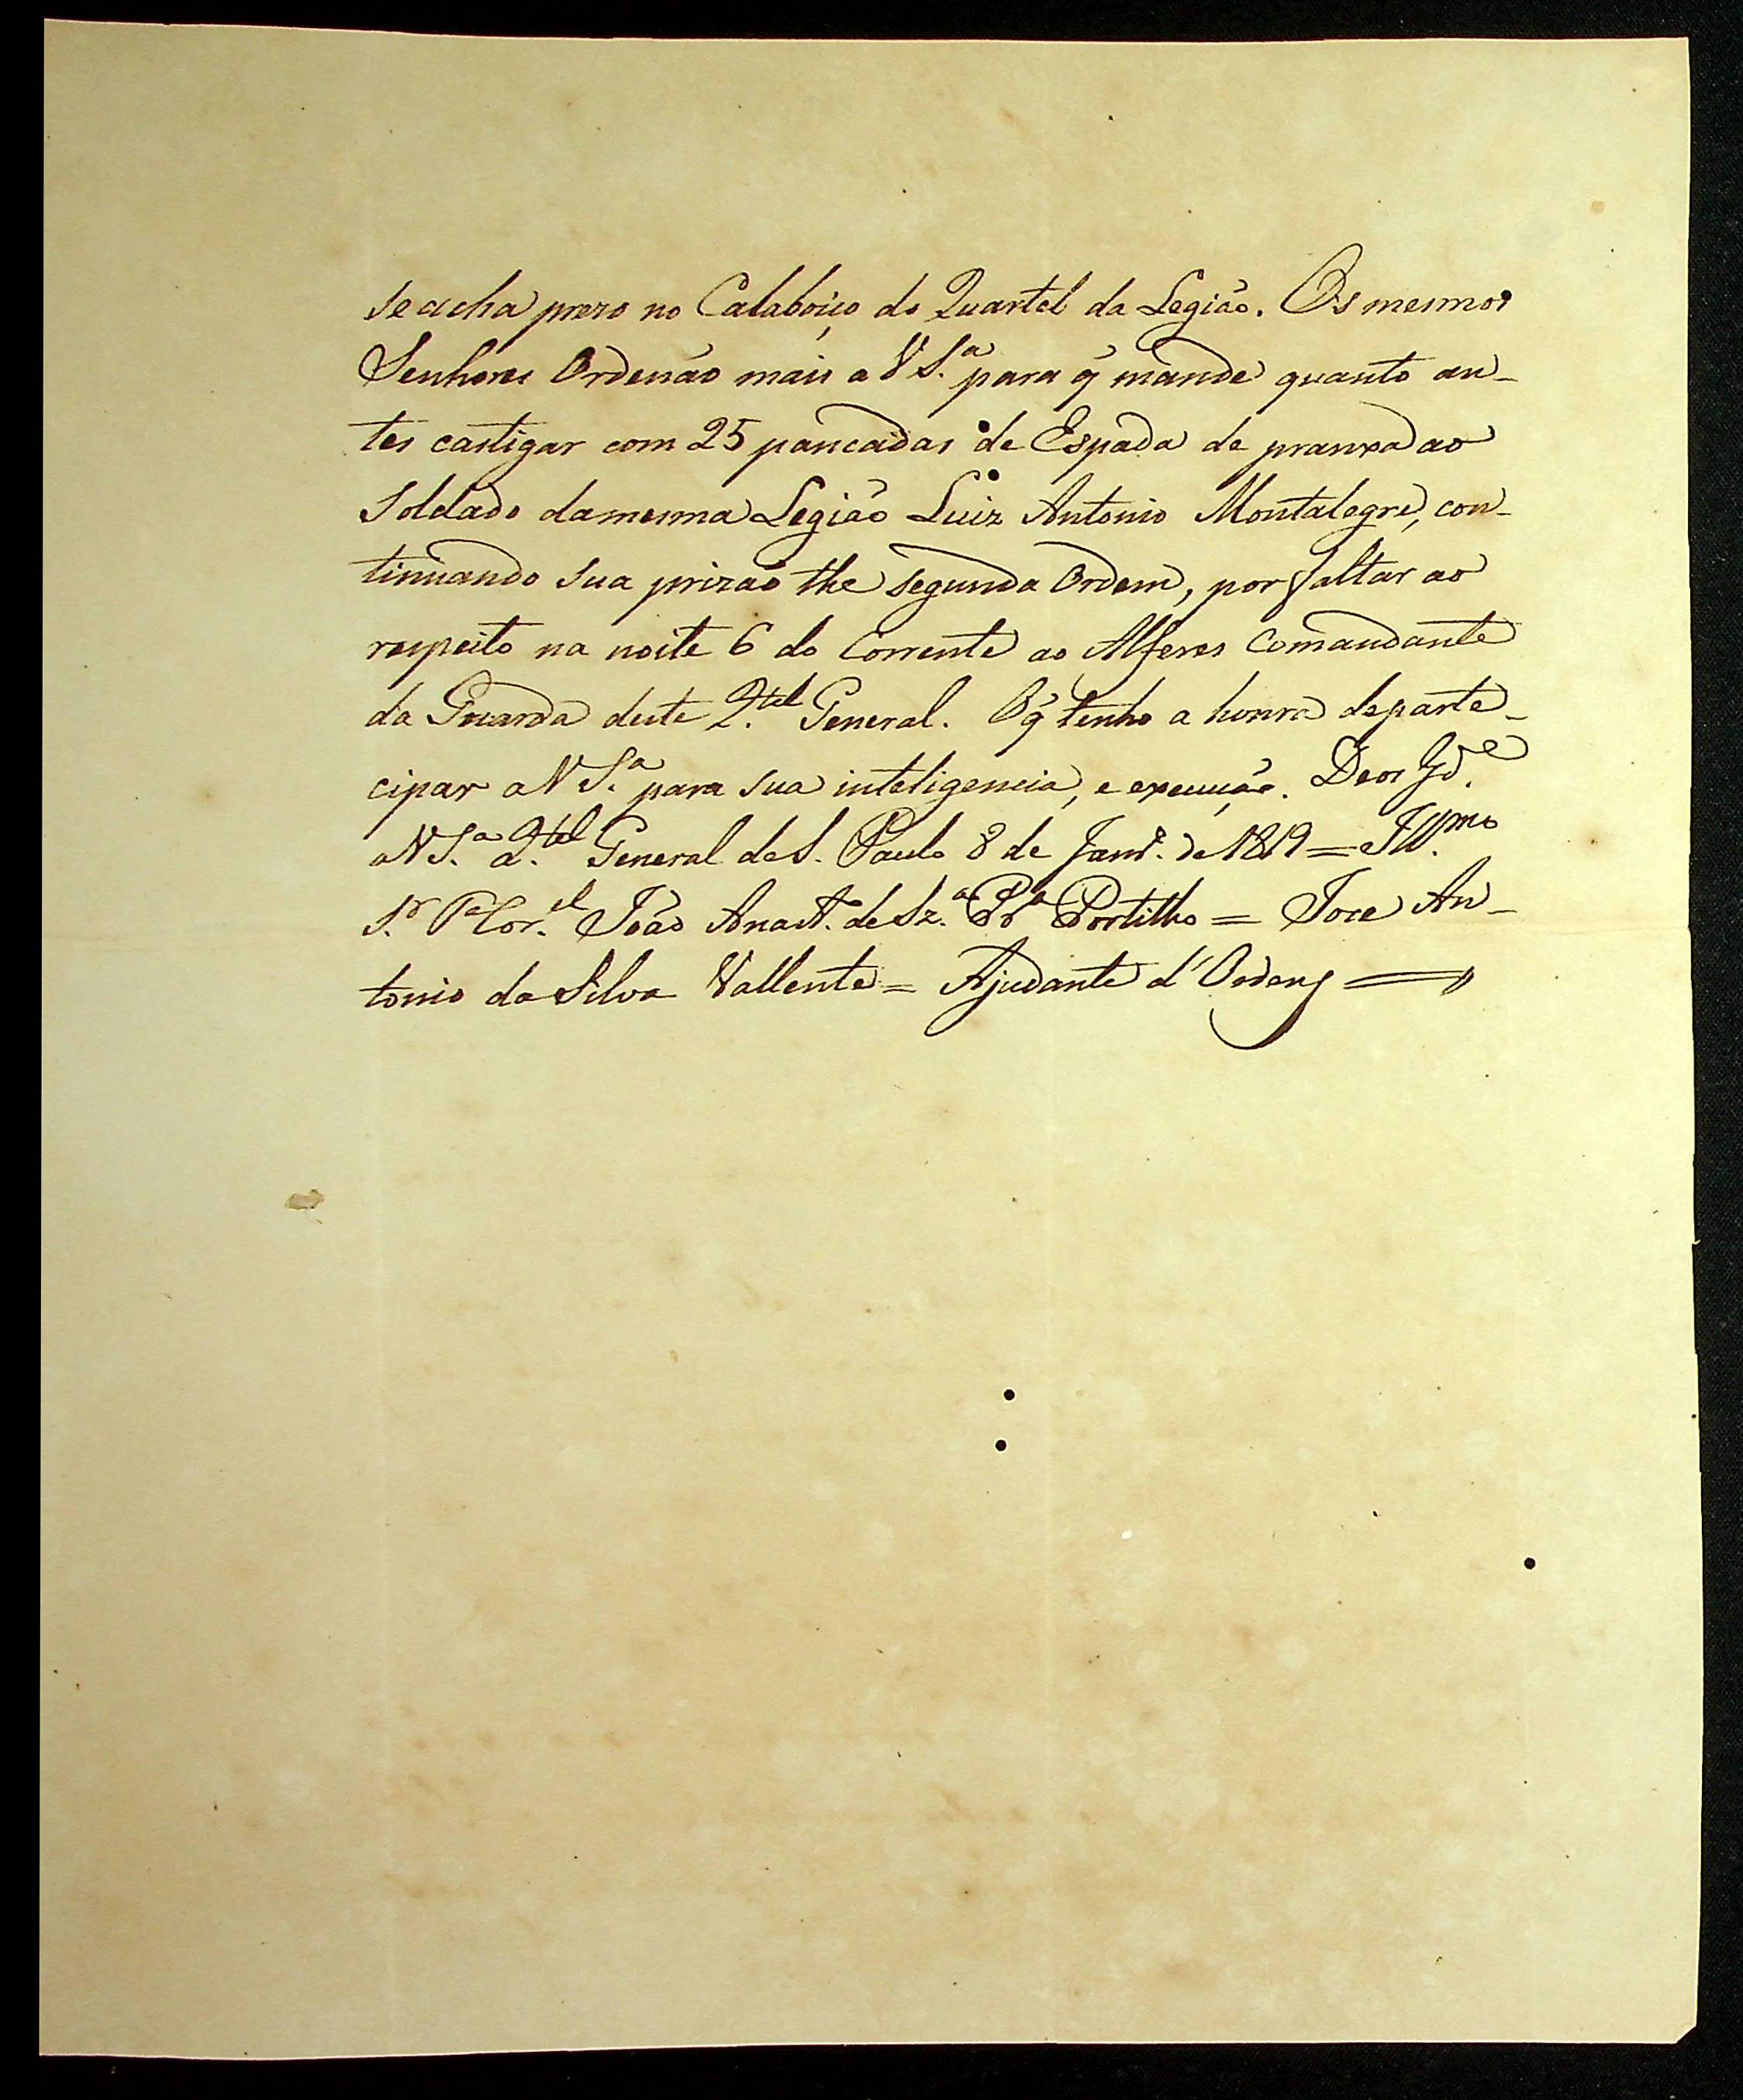 se acha prezo no Calaboiço do Quartel da Legião. Os mesmos
Senhores Ordenão mais a V S.ª para q̃ mande quanto an-
tes castigar com 25 pancadas de Espada de pranxa ao
Soldado da mesma Legião Luiz Antonio Montalegre, con-
tinuando sua prizão the segunda Ordem, por faltar ao
respeito na noite 6 do Corrente ao Alferes Comandante
da Guarda deste Q.tel General. O q̃ tenho a honra de parte-
cipar a V S.ª para sua inteligencia, e execução. Deos G.de
a V S.ª Q.tel General de S. Paulo 8 de Janr.º de 1819 = Ill.mo
S.r Cor.el João Anast. de Sz.ª Portilho = Joze An-
tonio da Silva Vallente = Ajudante d'Ordens =